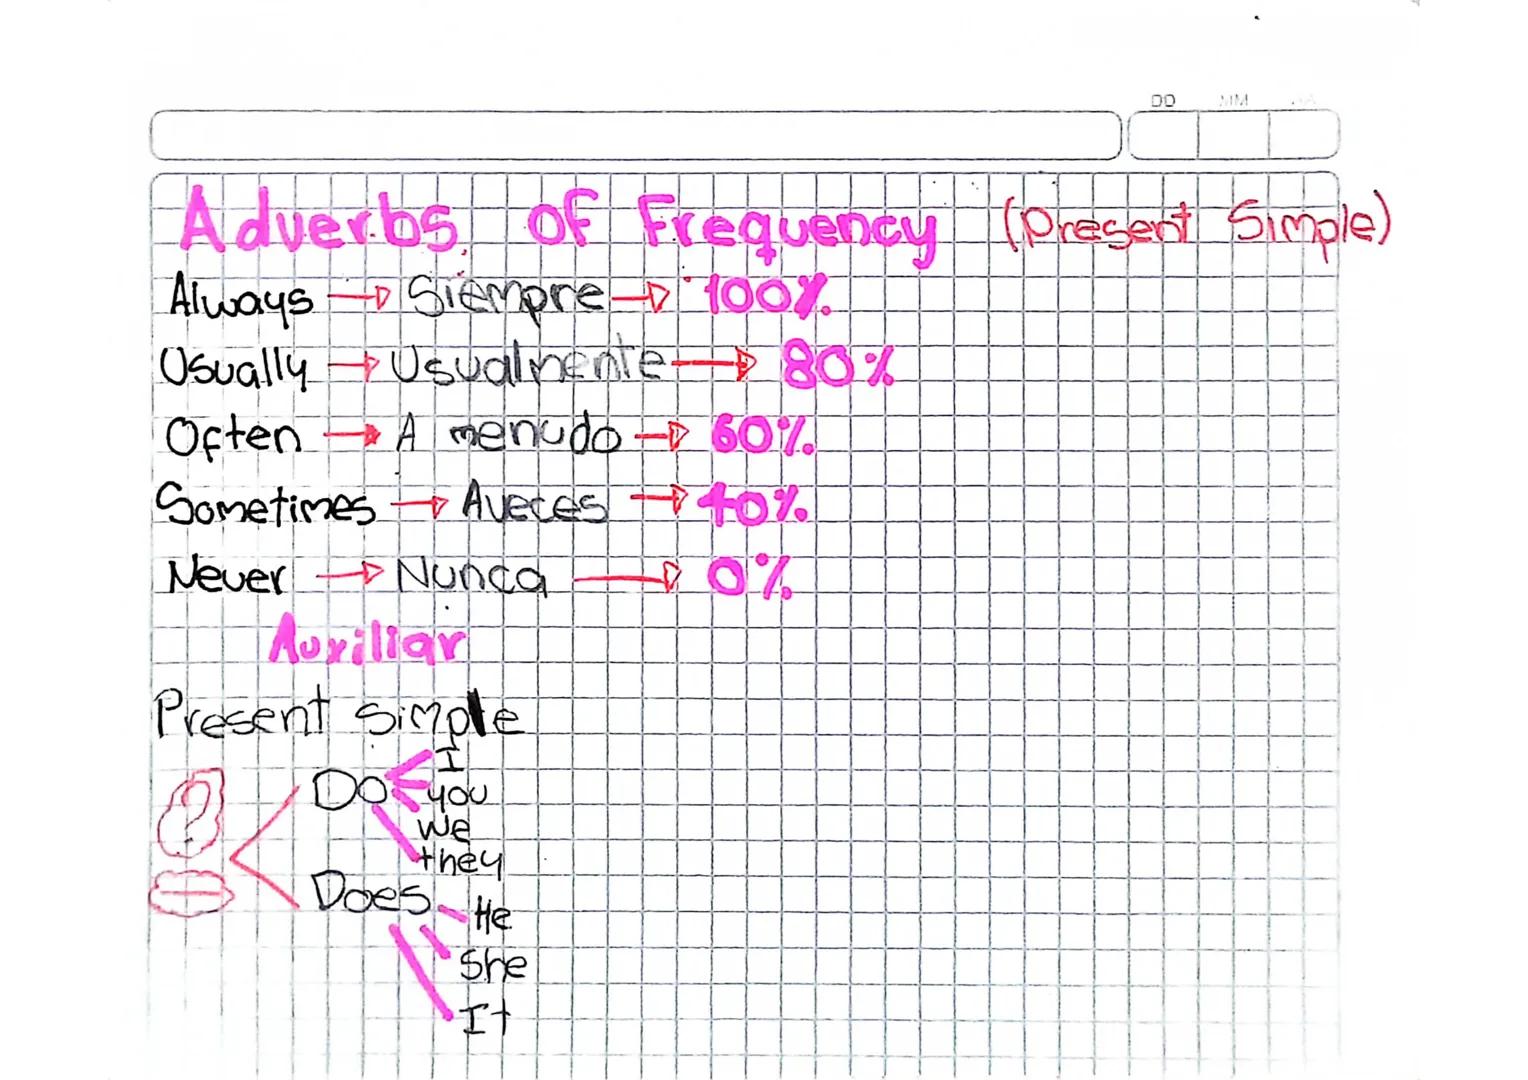 DD MM
Adverbs of Frequency (Present Simple)
Always → Siempre → 100%
Usually → Usualmente → 80%
Often → A menudo → 60%
Sometimes → Aveces → 40%
Never → Nunca → 0%
Auxiliar
Present simple
?
Do
I
you
we
they
—
Does
He
She
It